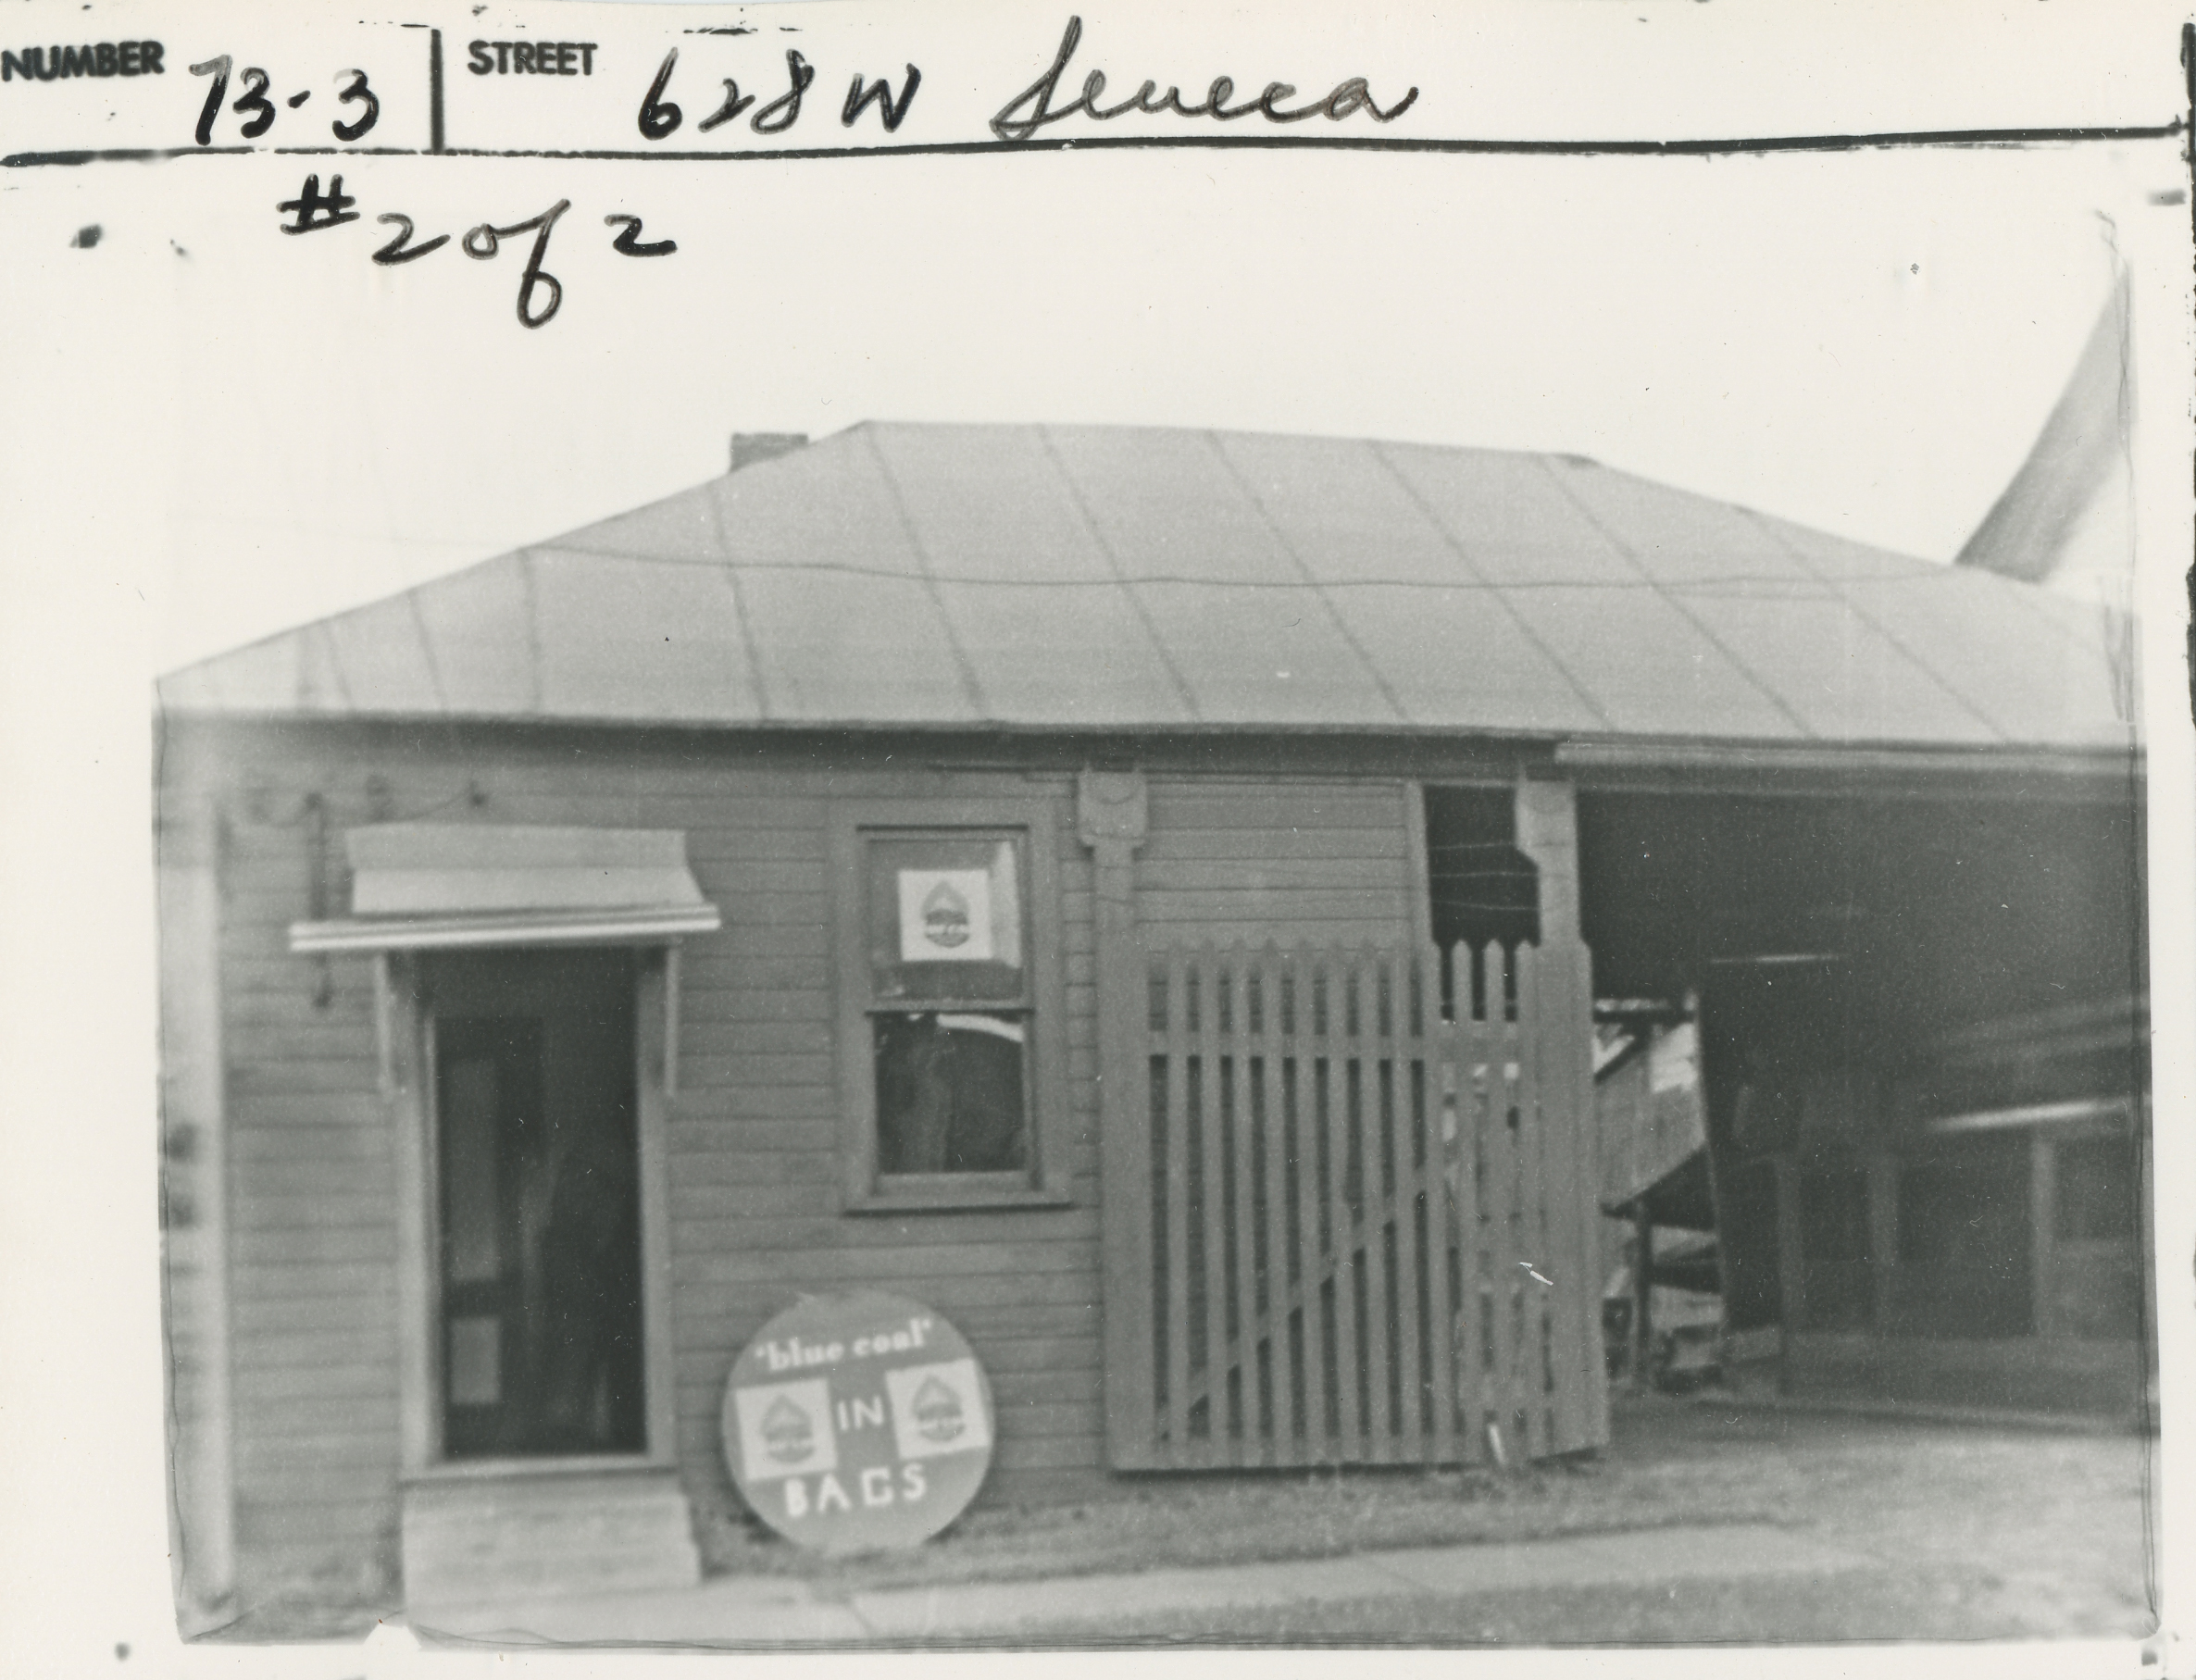 NUMBER 73-3 STREET 628 W Seneca
#2 of 2
"blue coal"
IN
BAGS